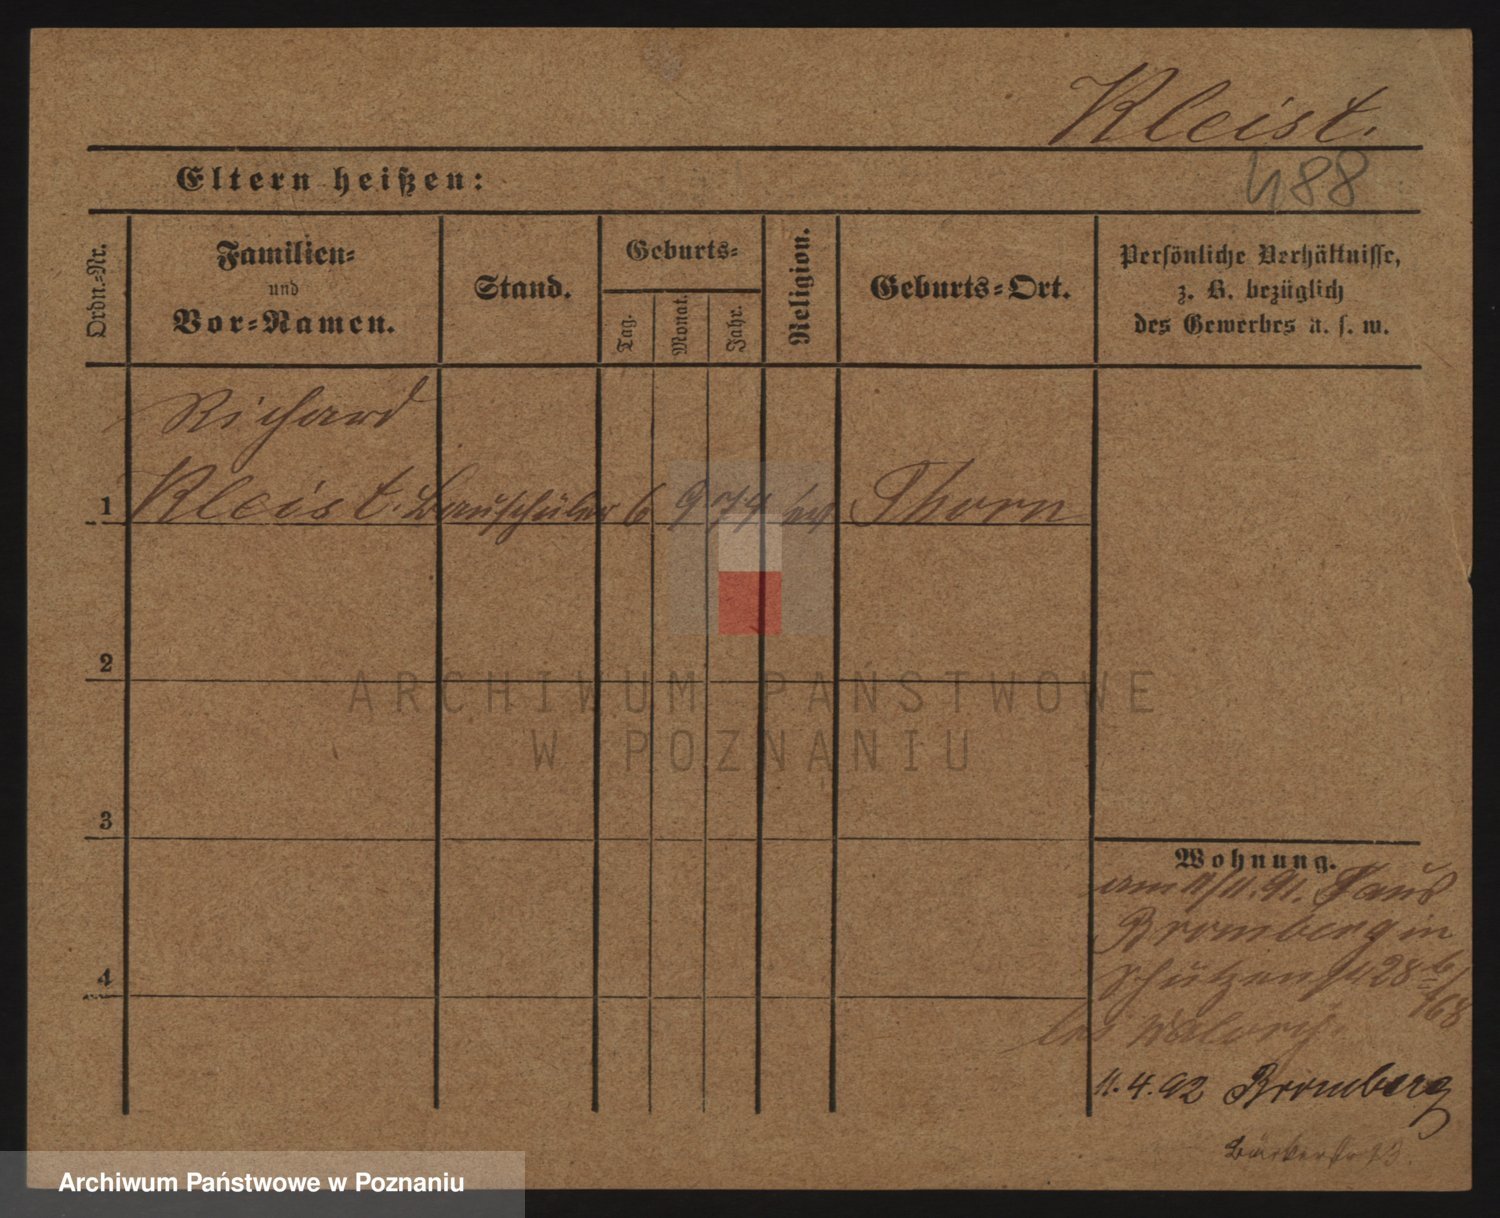 Kleist.
488
Eltern heißen:
Ordn.-Nr.
Familien-
und
Vor-Namen.
Stand.
Geburts-
Tag.
Monat.
Jahr.
Religion.
Geburts-Ort.
Persönliche Verhältnisse,
z. B. bezüglich
des Gewerbes u. s. w.
Richard
1 Kleist. Bauschüler 6 9 79 ev Thorn
2
3
4
ARCHIWUM PAŃSTWOWE
W POZNANIU
Wohnung.
am 11/11. 91. aus
Bromberg in
Schützenst 28
bei
11. 4. 92 Bromberg
Archiwum Państwowe w Poznaniu